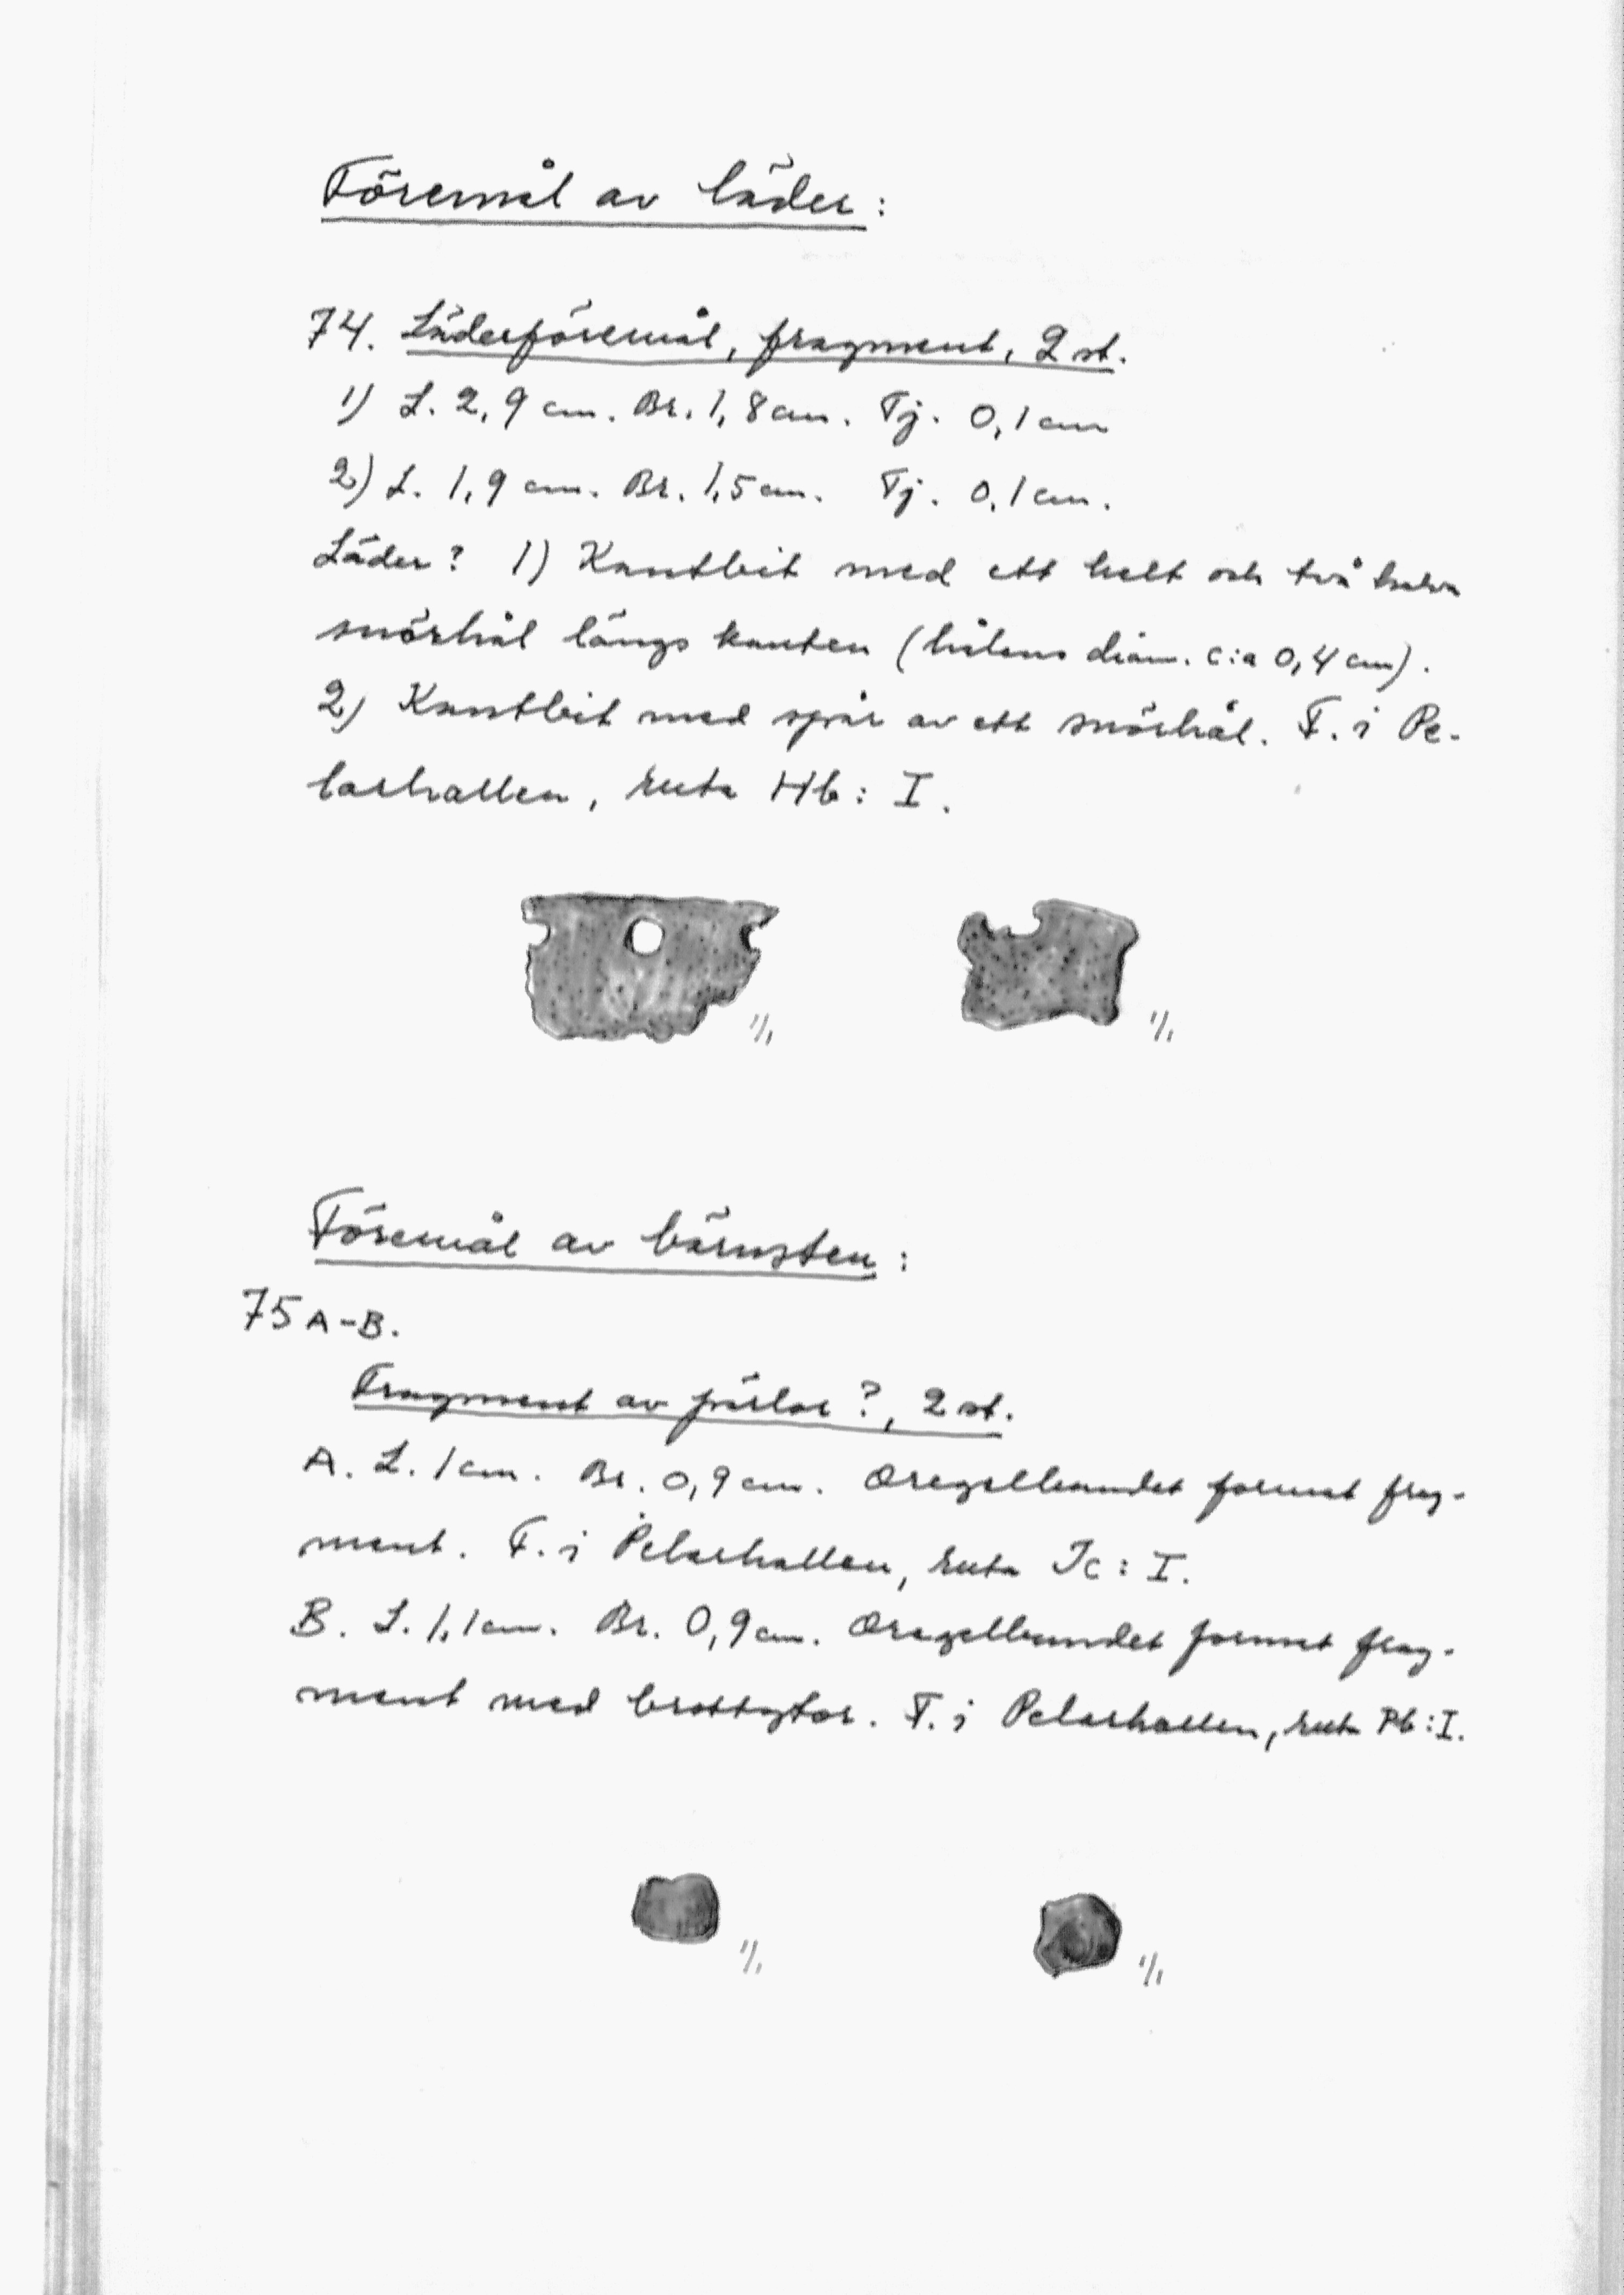 Föremål av läder:
74. Läderföremål, fragment, 2 st.
1) L. 2,9 cm. Br. 1,8 cm. Tj. 0,1 cm
2) L. 1,9 cm. Br. 1,5 cm. Tj. 0,1 cm.
Läder? 1) Kantbit med ett helt och två halva
snörhål längs kanten (hålens diam. c:a 0,4 cm).
2) Kantbit med spår av ett snörhål. F. i Pe-
larhallen, ruta Hb: I.
1/1
1/1
Föremål av bärnsten:
75 A-B.
Fragment av pärlor?, 2 st.
A. L. 1 cm. Br. 0,9 cm. Oregelbundet format frag-
ment. F. i Pelarhallen, ruta Ic: I.
B. L. 1,1 cm. Br. 0,9 cm. Oregelbundet format frag-
ment med brottytor. F. i Pelarhallen, ruta Pb: I.
1/1
1/1